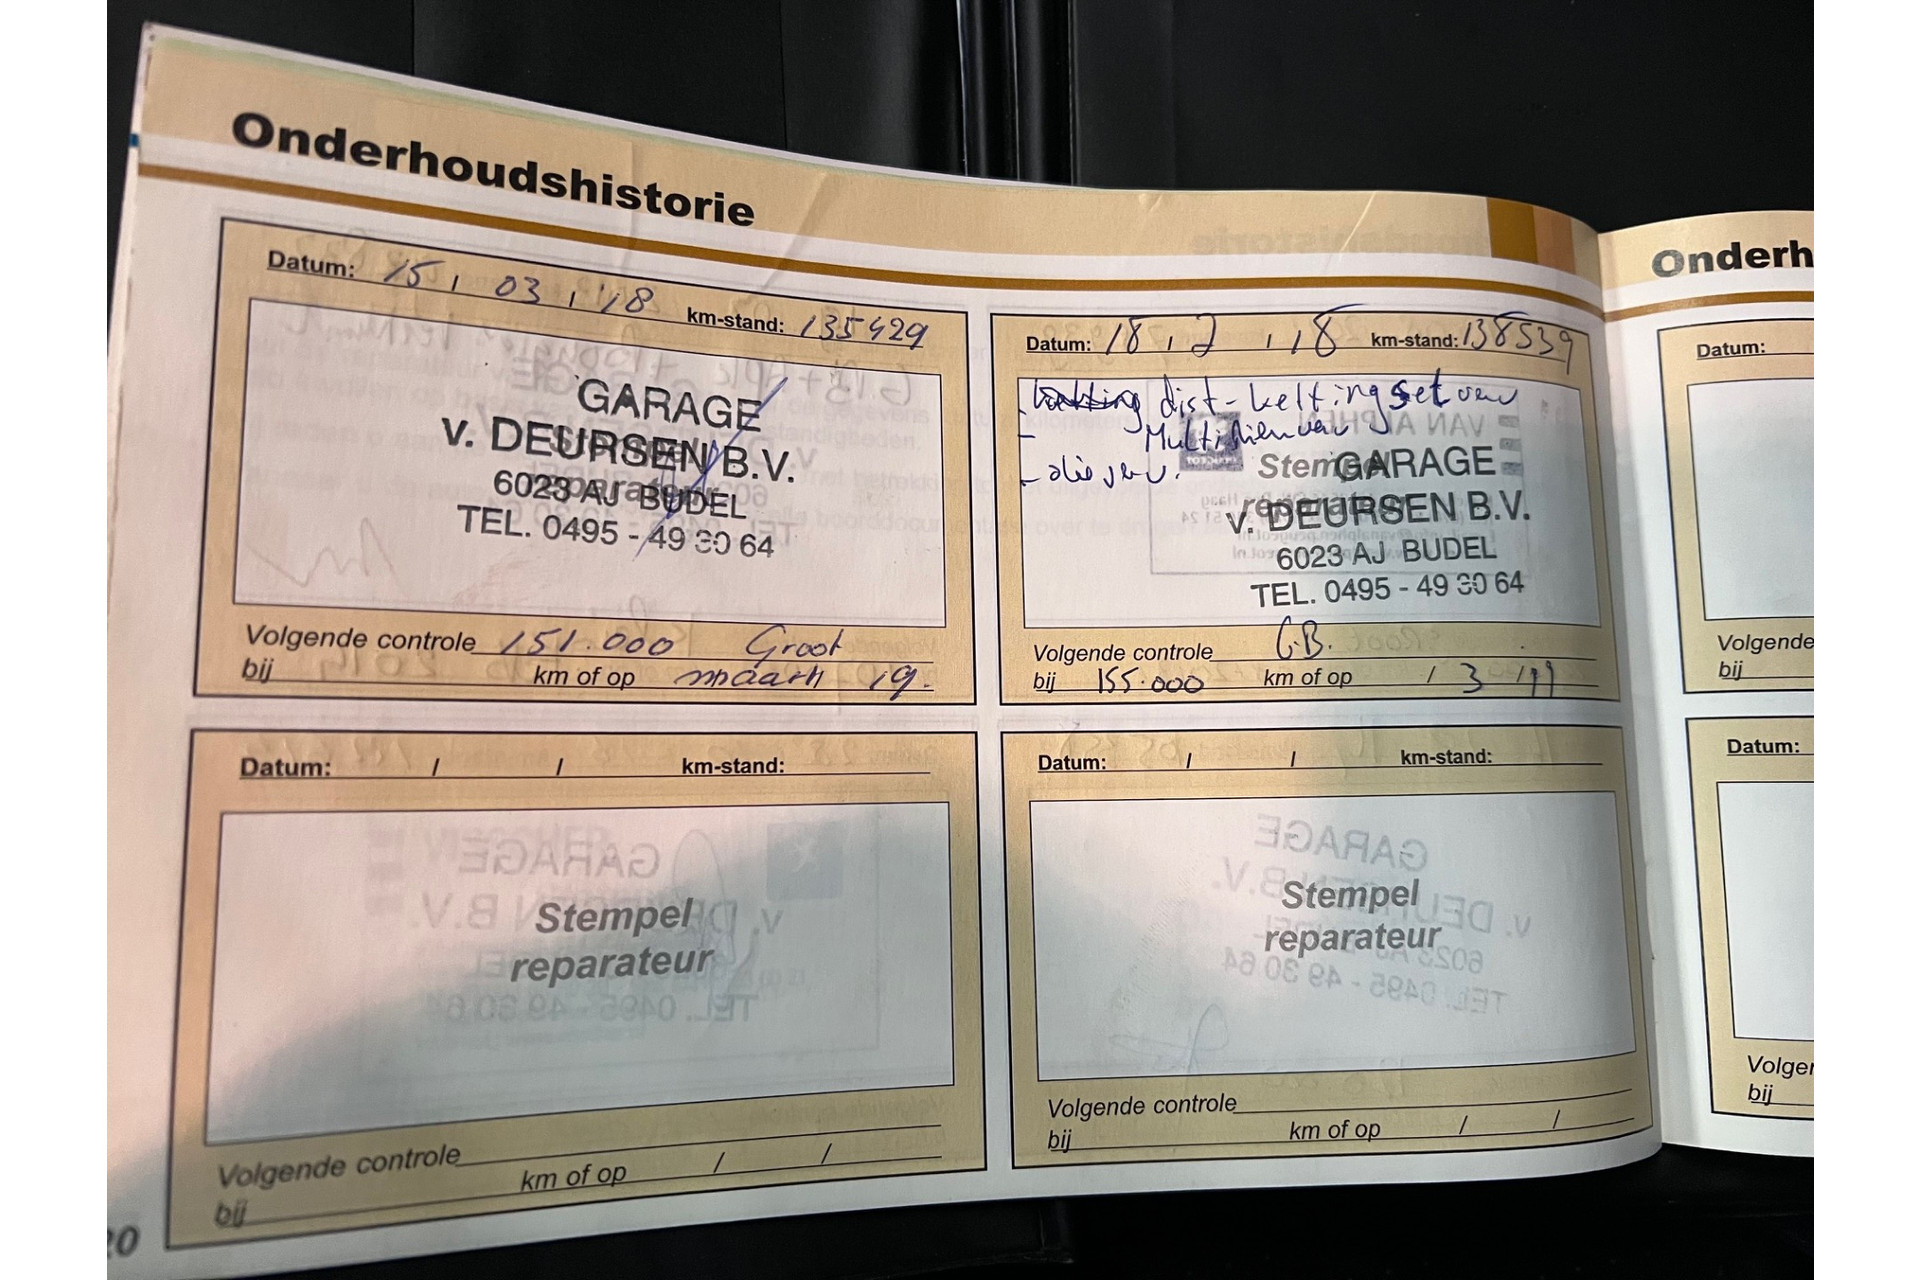 Onderhoudshistorie
Datum: 15 / 03 / '18 km-stand: 135429
GARAGE
v. DEURSEN B.V.
6023 AJ BUDEL
TEL. 0495 - 49 30 64
Volgende controle 151.000 Groot
bij km of op maart 19.
Datum: 18 / 2 / 18 km-stand: 138539
dist-kettingset verv
Multiriem verv
- olie verv.
Stempel
reparateur
GARAGE
v. DEURSEN B.V.
6023 AJ BUDEL
TEL. 0495 - 49 30 64
Volgende controle G.B.
bij 155.000 km of op / 3 / 19
Datum: / / km-stand:
Stempel
reparateur
Volgende controle
bij km of op / /
Datum: / / km-stand:
Stempel
reparateur
Volgende controle
bij km of op / /
20
Onderh
Datum:
Volgende
bij
Datum:
Volger
bij